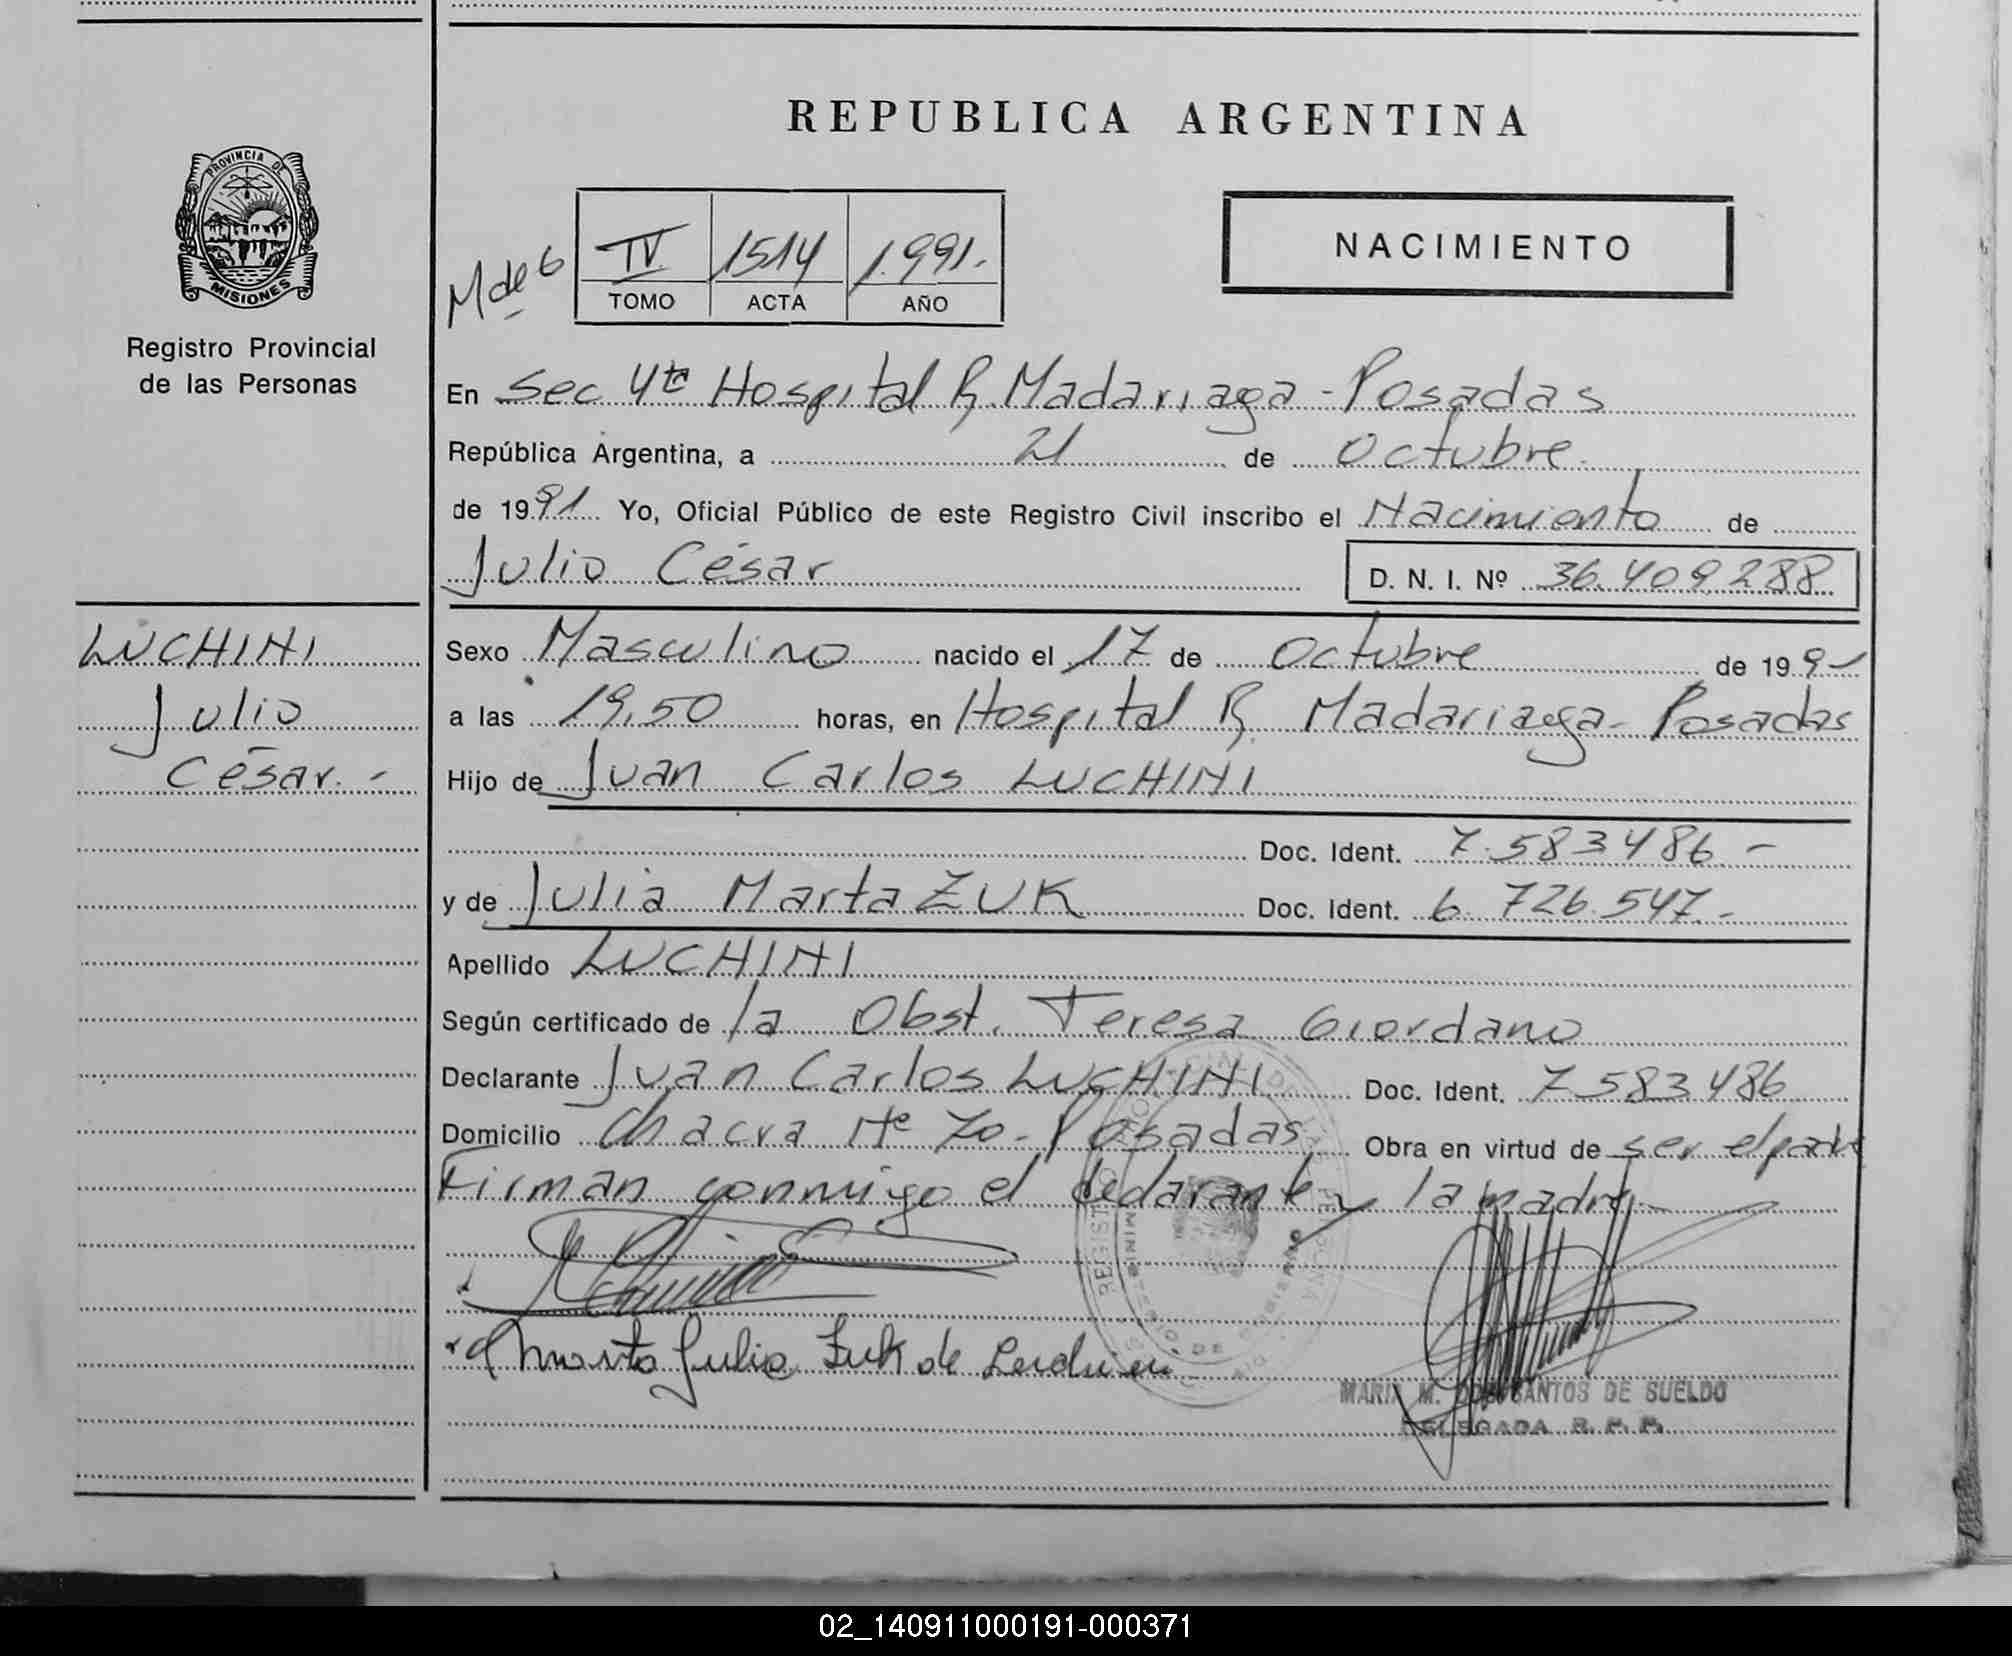 REPUBLICA ARGENTINA
PROVINCIA DE
MISIONES
Registro Provincial
de las Personas
M de 6
IV 1514 1.991.-
TOMO ACTA AÑO
NACIMIENTO
En Sec 4ta Hospital R. Madariaga - Posadas
República Argentina, a 21 de Octubre.
de 1991 Yo, Oficial Público de este Registro Civil inscribo el Nacimiento de
Julio César D. N. I. Nº 36.409.288
LUCHINI
Julio
César.-
Sexo Masculino nacido el 17 de Octubre de 1991
a las 19,50 horas, en Hospital R. Madariaga - Posadas
Hijo de Juan Carlos LUCHINI
Doc. Ident. 7.583486-
y de Julia Marta ZUK Doc. Ident. 6.726.547.-
Apellido LUCHINI
Según certificado de la Obst. Teresa Giordano
Declarante Juan Carlos LUCHINI Doc. Ident. 7583486
Domicilio Chacra Nº 70 - Posadas Obra en virtud de ser el padre
Firman conmigo el declarante y la madre.-
Marta Julia Zuk de
MARIA M. DOS SANTOS DE SUELDO
DELEGADA R. P. P.
02_140911000191-000371